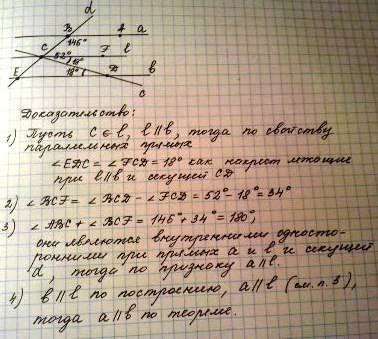 d
B A a
145°
C 52° F l
18°
E 18° D b
c
Доказательство:
1) Пусть C ∈ l, l || b, тогда по свойству
параллельных прямых
∠EDC = ∠FCD = 18° как накрест лежащие
при l || b и секущей CD
2) ∠BCF = ∠BCD - ∠FCD = 52° - 18° = 34°
3) ∠ABC + ∠BCF = 145° + 34° = 180°,
они являются внутренними односто-
ронними при прямых a и l и секущей
d, тогда по признаку a || l.
4) b || l по построению, a || l (см. п. 3),
тогда a || b по теореме.